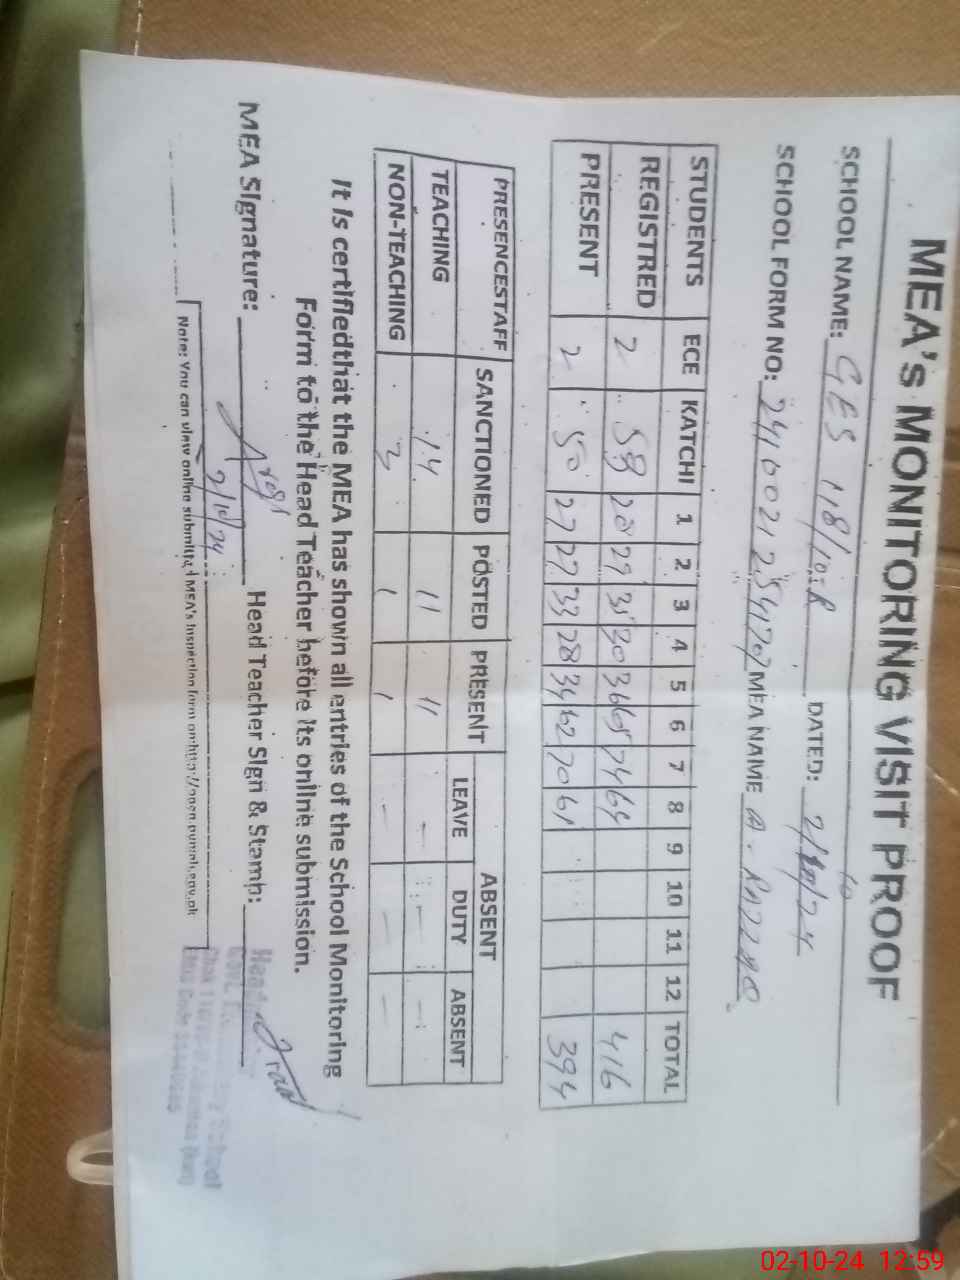 MEA's MONITORING VISIT PROOF
SCHOOL NAME: GES 118/10-R DATED: 2/10/24
SCHOOL FORM NO: MEA NAME A. RAZZAQ
STUDENTS ECE KATCHI 1 2 3 4 5 6 7 8 9 10 11 12 TOTAL
REGISTRED 2 58 28 29 31 30 36 65 74 64 416
PRESENT 2 50 27 27 33 28 34 62 70 61 394
PRESENCESTAFF SANCTIONED POSTED PRESENT ABSENT
LEAVE DUTY ABSENT
TEACHING 14 11 11 - - -
NON-TEACHING 3 1 1 - - -
It is certifiedthat the MEA has shown all entries of the School Monitoring
Form to the Head Teacher before its online submission.
MEA Signature: Head Teacher Sign & Stamp:
2/10/24
Note: You can view online submitted MEA's Inspection form on:http://open.punjab.gov.pk
School
02-10-24 12:59